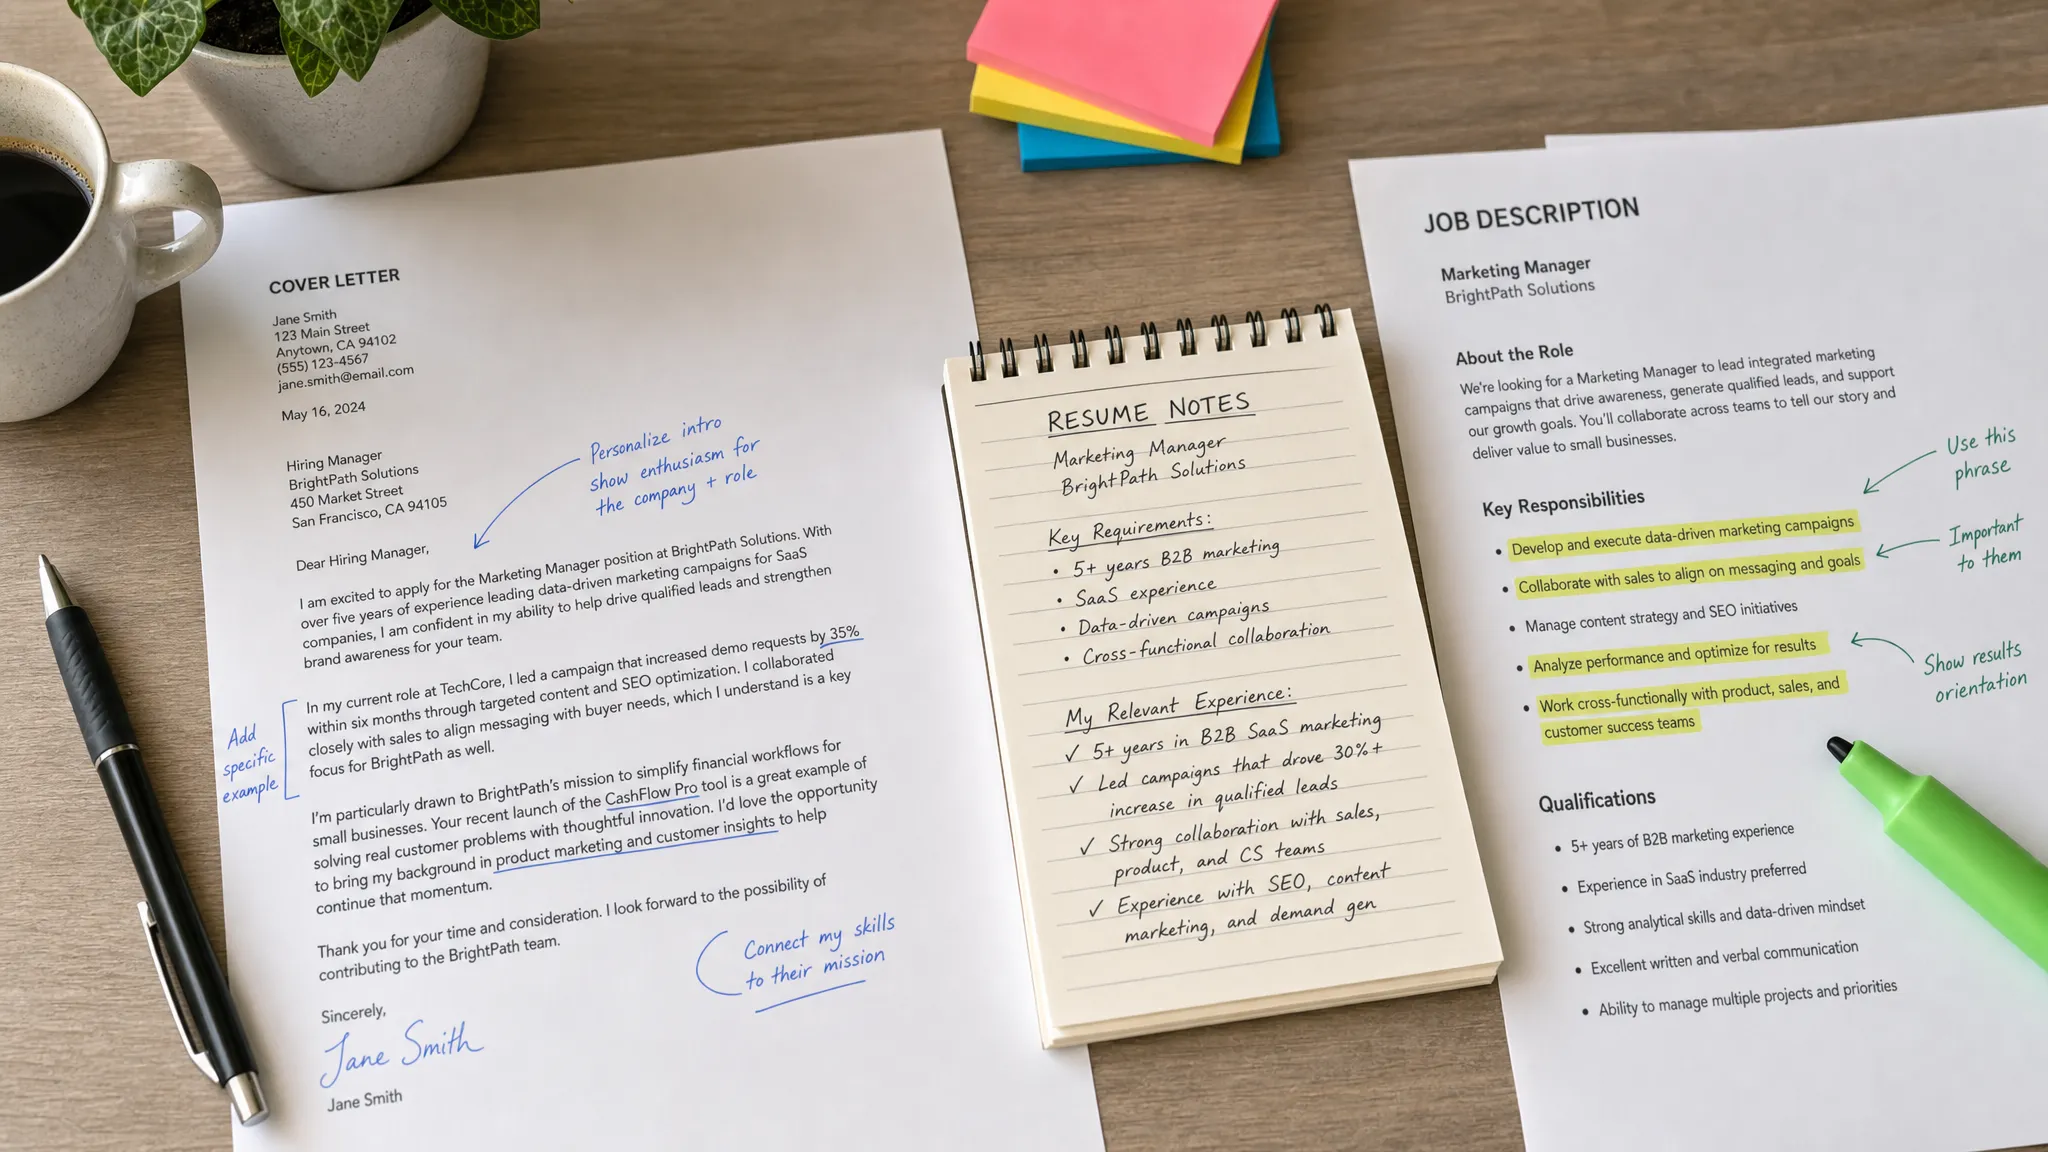 COVER LETTER
Jane Smith
123 Main Street
Anytown, CA 94102
(555) 123-4567
jane.smith@email.com
May 16, 2024
Hiring Manager
BrightPath Solutions
450 Market Street
San Francisco, CA 94105
Personalize intro
show enthusiasm for
the company + role
Dear Hiring Manager,
I am excited to apply for the Marketing Manager position at BrightPath Solutions. With
over five years of experience leading data-driven marketing campaigns for SaaS
companies, I am confident in my ability to help drive qualified leads and strengthen
brand awareness for your team.
In my current role at TechCore, I led a campaign that increased demo requests by 35%
within six months through targeted content and SEO optimization. I collaborated
closely with sales to align messaging with buyer needs, which I understand is a key
focus for BrightPath as well.
Add
specific
example
I'm particularly drawn to BrightPath's mission to simplify financial workflows for
small businesses. Your recent launch of the CashFlow Pro tool is a great example of
solving real customer problems with thoughtful innovation. I'd love the opportunity
to bring my background in product marketing and customer insights to help
continue that momentum.
Thank you for your time and consideration. I look forward to the possibility of
contributing to the BrightPath team.
Connect my skills
to their mission
Sincerely,
Jane Smith
Jane Smith
RESUME NOTES
Marketing Manager
BrightPath Solutions
Key Requirements:
• 5+ years B2B marketing
• SaaS experience
• Data-driven campaigns
• Cross-functional collaboration
My Relevant Experience:
✓ 5+ years in B2B SaaS marketing
✓ Led campaigns that drove 30%+
increase in qualified leads
✓ Strong collaboration with sales,
product, and CS teams
✓ Experience with SEO, content
marketing, and demand gen
JOB DESCRIPTION
Marketing Manager
BrightPath Solutions
About the Role
We're looking for a Marketing Manager to lead integrated marketing
campaigns that drive awareness, generate qualified leads, and support
our growth goals. You'll collaborate across teams to tell our story and
deliver value to small businesses.
Key Responsibilities
• Develop and execute data-driven marketing campaigns
• Collaborate with sales to align on messaging and goals
• Manage content strategy and SEO initiatives
• Analyze performance and optimize for results
• Work cross-functionally with product, sales, and
customer success teams
Use this
phrase
Important
to them
Show results
orientation
Qualifications
• 5+ years of B2B marketing experience
• Experience in SaaS industry preferred
• Strong analytical skills and data-driven mindset
• Excellent written and verbal communication
• Ability to manage multiple projects and priorities